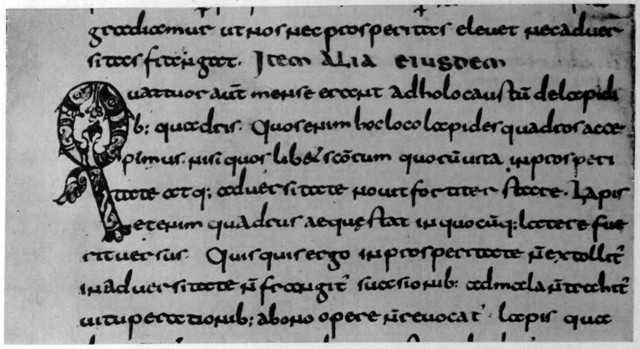 gradiamur ut nos nec prosperitas elevet nec adver
sitas frangat. Item alia eiusdem
Quattuor aut̄ mense erant ad holocaustū de lapidi
b: quadris. Quos enim hoc loco lapides quadros acce
pimus nisi quos libet sc̄orum quorū vita in prosperi
tate atq: adversitate novit fortiter stare. Lapis
etenim quadrus aeque stat in quocūq: latere fue
rit versus. Quisquis ergo in prosperitate n̄ extollit᷑
in adversitate n̄ frangit᷑ suasionib: ad mala n̄ trahit᷑
vituperationib: a bono opere n̄ revocat᷑ lapis qua